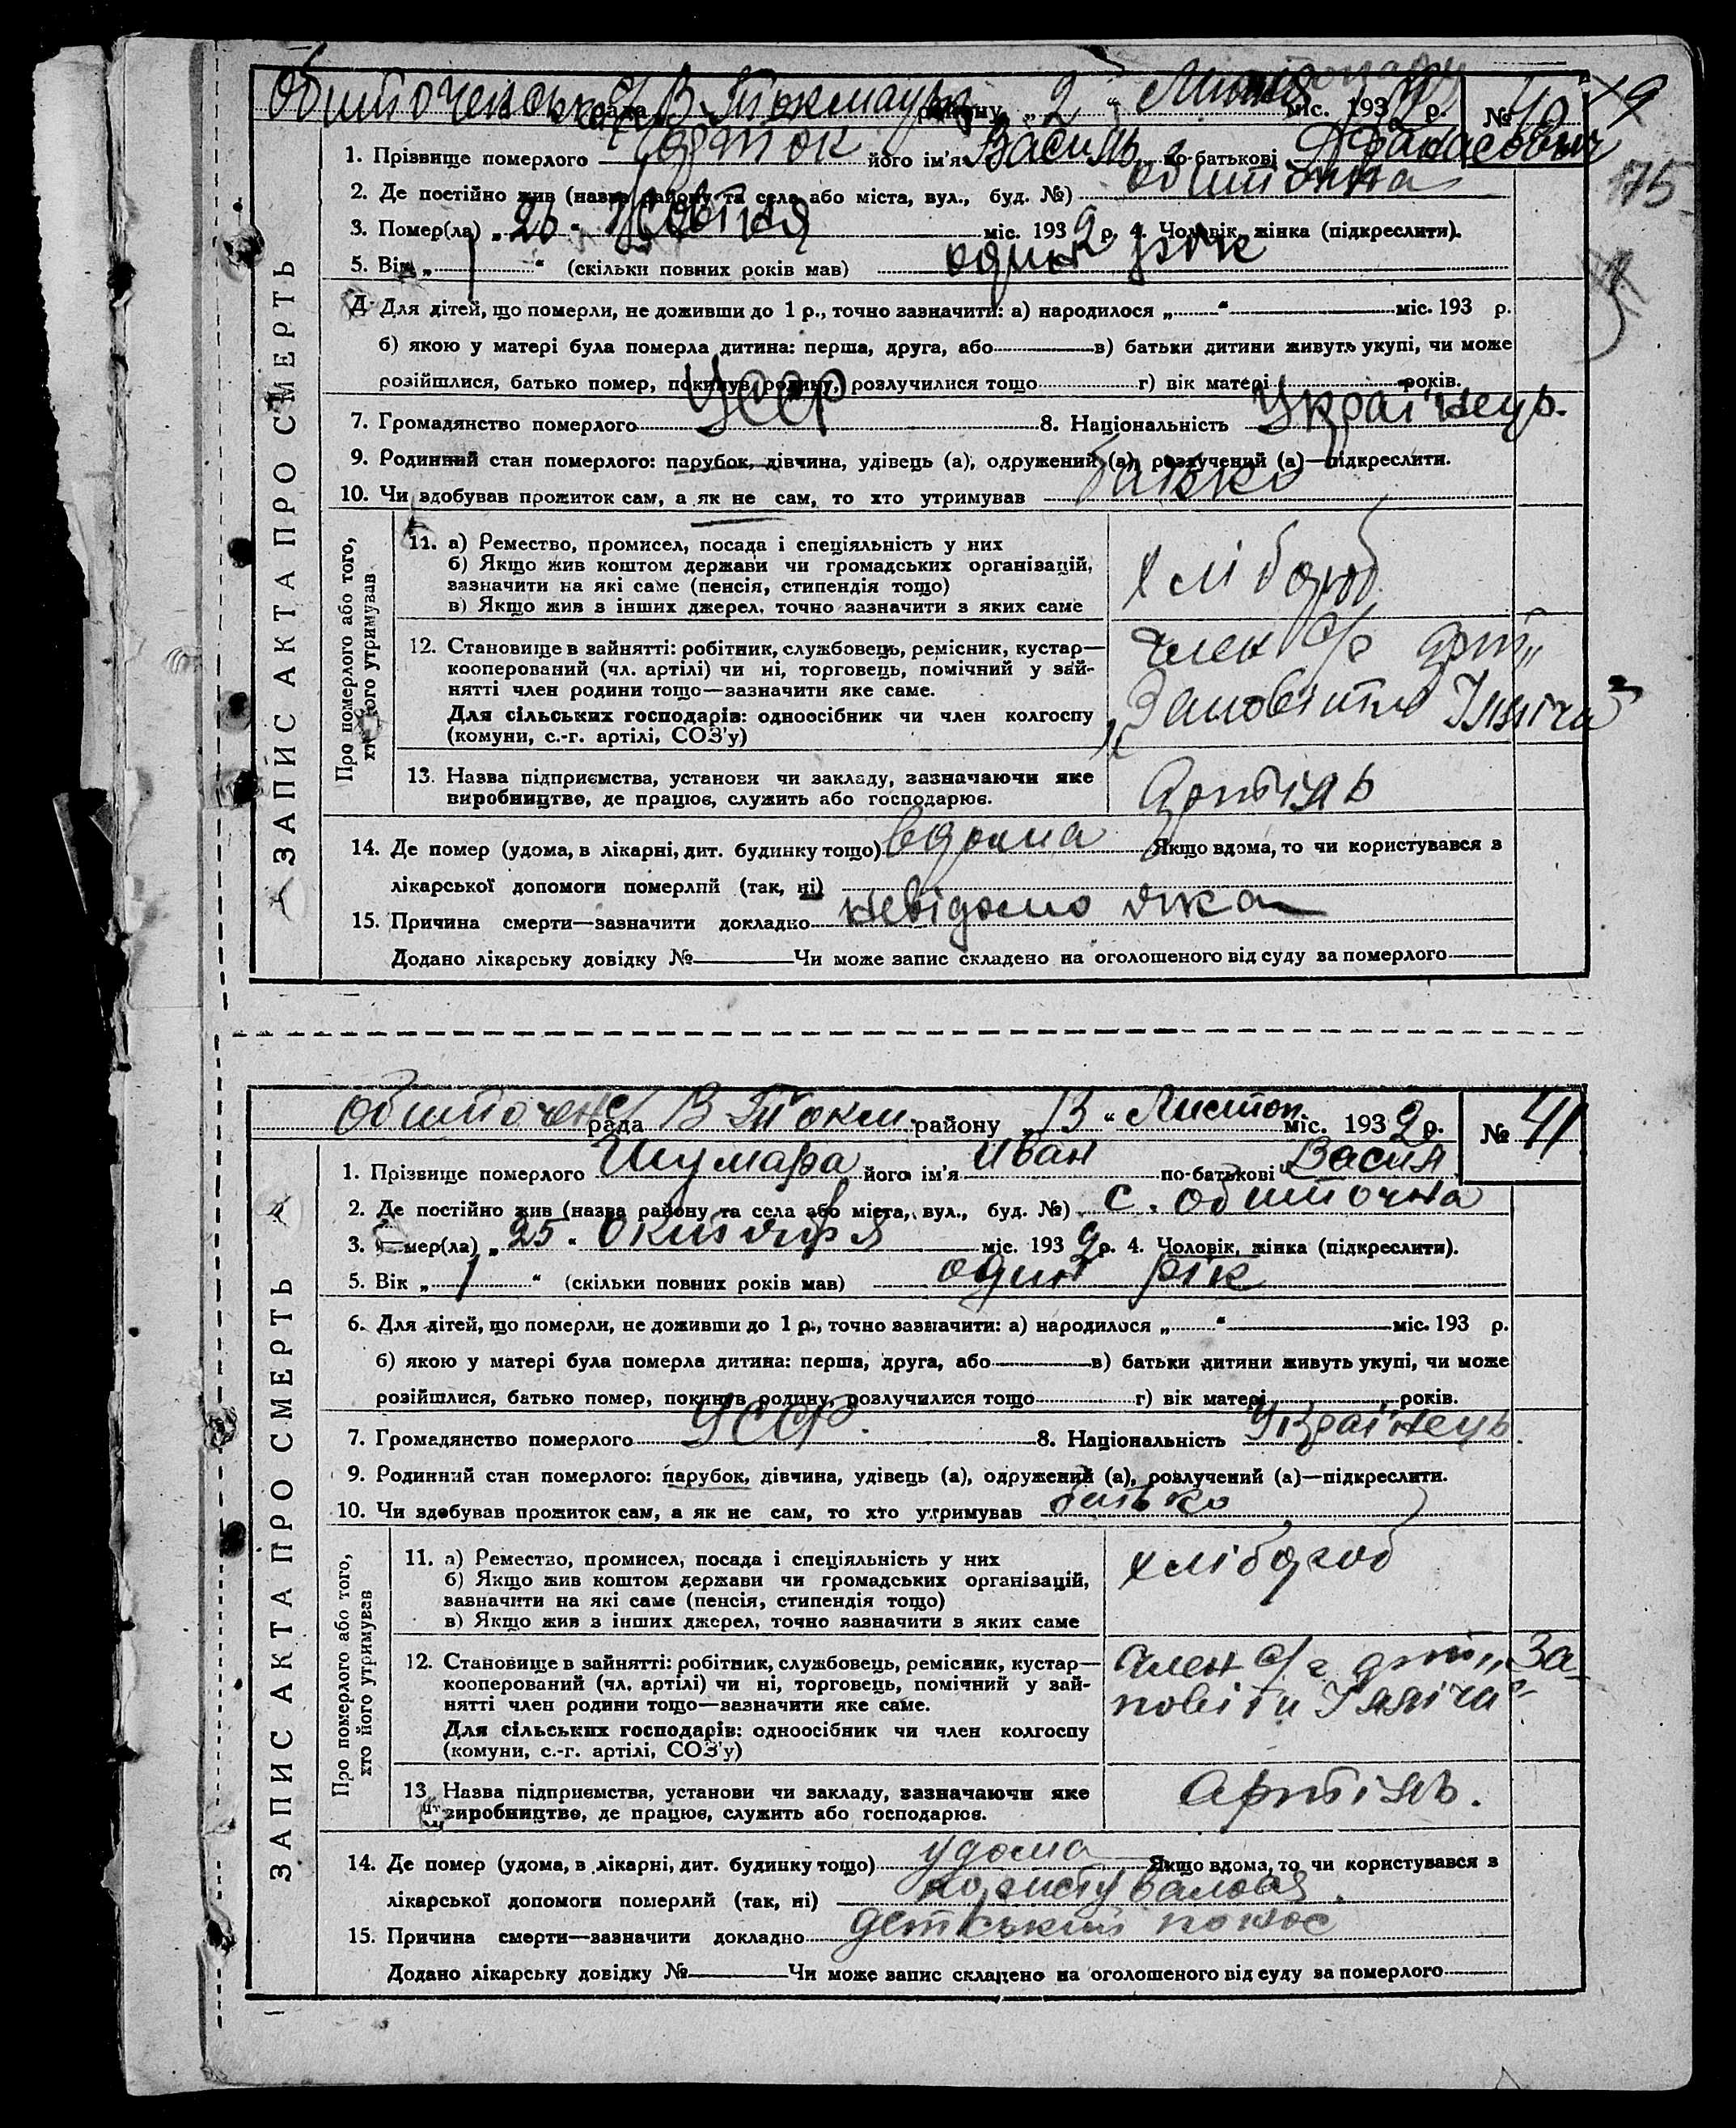 Обиточенська с/рада В-Токмацьк району „ 2 “ міс. 1932 р. № 40
175
ЗАПИС АКТА ПРО СМЕРТЬ
1. Прізвище померлого його ім'я Василь по-батькові Афанасович
2. Де постійно жив (назва району та села або міста, вул., буд. №) Обиточна
3. Помер(ла) „ 26 “ Жовтня міс. 1932 р. 4. Чоловік, жінка (підкреслити).
5. Вік „ 1 “ (скільки повних років мав) один рік
Для дітей, що померли, не доживши до 1 р., точно зазначити: а) народилося „ “ міс. 193 р.
б) якою у матері була померла дитина: перша, друга, або в) батьки дитини живуть укупі, чи може
розійшлися, батько помер, покинув родину, розлучилися тощо г) вік матері років.
7. Громадянство померлого УССР 8. Національність Українець.
9. Родинний стан померлого: парубок, дівчина, удівець (а), одружений (а), розлучений (а)—підкреслити.
10. Чи здобував прожиток сам, а як не сам, то хто утримував батько
Про померлого або того, хто його утримував
11. а) Ремество, промисел, посада і спеціяльність у них
б) Якщо жив коштом держави чи громадських організацій,
зазначити на які саме (пенсія, стипендія тощо)
в) Якщо жив з інших джерел, точно зазначити з яких саме
хлібороб
12. Становище в зайнятті: робітник, службовець, ремісник, кустар—
кооперований (чл. артілі) чи ні, торговець, помічний у зай-
нятті член родини тощо—зазначити яке саме.
Для сільських господарів: одноосібник чи член колгоспу
(комуни, с.-г. артілі, СОЗ'у)
член с/г арт.
Ілліча“
13. Назва підприємства, установи чи закладу, зазначаючи яке
виробництво, де працює, служить або господарює.
Артіль
14. Де помер (удома, в лікарні, дит. будинку тощо) вдома Якщо вдома, то чи користувався з
лікарської допомоги померлий (так, ні)
15. Причина смерти—зазначити докладно невідомо яка
Додано лікарську довідку № Чи може запис складено на оголошеного від суду за померлого
Обиточен с/рада В Токм. району „ 13 “ Листоп. міс. 1932 р. № 41
ЗАПИС АКТА ПРО СМЕРТЬ
1. Прізвище померлого Шумара його ім'я Иван по-батькові Васил.
2. Де постійно жив (назва району та села або міста, вул., буд. №) с. Обиточна
3. Помер(ла) „ 25 “ Октября міс. 1932 р. 4. Чоловік, жінка (підкреслити).
5. Вік „ 1 “ (скільки повних років мав) один рік
6. Для дітей, що померли, не доживши до 1 р., точно зазначити: а) народилося „ “ міс. 193 р.
б) якою у матері була померла дитина: перша, друга, або в) батьки дитини живуть укупі, чи може
розійшлися, батько помер, покинув родину, розлучилися тощо г) вік матері років.
7. Громадянство померлого УССР. 8. Національність Українець.
9. Родинний стан померлого: парубок, дівчина, удівець (а), одружений (а), розлучений (а)—підкреслити.
10. Чи здобував прожиток сам, а як не сам, то хто утримував батько
Про померлого або того, хто його утримував
11. а) Ремество, промисел, посада і спеціяльність у них
б) Якщо жив коштом держави чи громадських організацій,
зазначити на які саме (пенсія, стипендія тощо)
в) Якщо жив з інших джерел, точно зазначити з яких саме
хлібороб
12. Становище в зайнятті: робітник, службовець, ремісник, кустар—
кооперований (чл. артілі) чи ні, торговець, помічний у зай-
нятті член родини тощо—зазначити яке саме.
Для сільських господарів: одноосібник чи член колгоспу
(комуни, с.-г. артілі, СОЗ'у)
член с/г арт. „За-
повіти Ілліча“
13. Назва підприємства, установи чи закладу, зазначаючи яке
виробництво, де працює, служить або господарює.
Артіль.
14. Де помер (удома, в лікарні, дит. будинку тощо) удома Якщо вдома, то чи користувався з
лікарської допомоги померлий (так, ні)
15. Причина смерти—зазначити докладно детський понос
Додано лікарську довідку № Чи може запис складено на оголошеного від суду за померлого